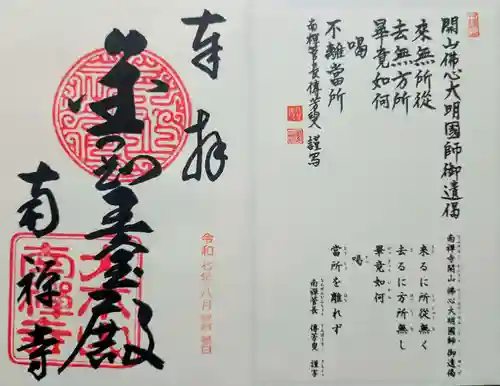 開山佛心大明國師御遺偈
來無所從
去無方所
畢竟如何
喝
不離當所
南禪管長傳芳叟 謹写
南禅寺開山 佛心大明國師 御遺偈
来るに所從無く
去るに方所無し
畢竟如何
喝
當所を離れず
南禅管長 傳芳叟 謹写
奉拝
金剛王宝殿
南禅寺
令和七年八月
南禅寺